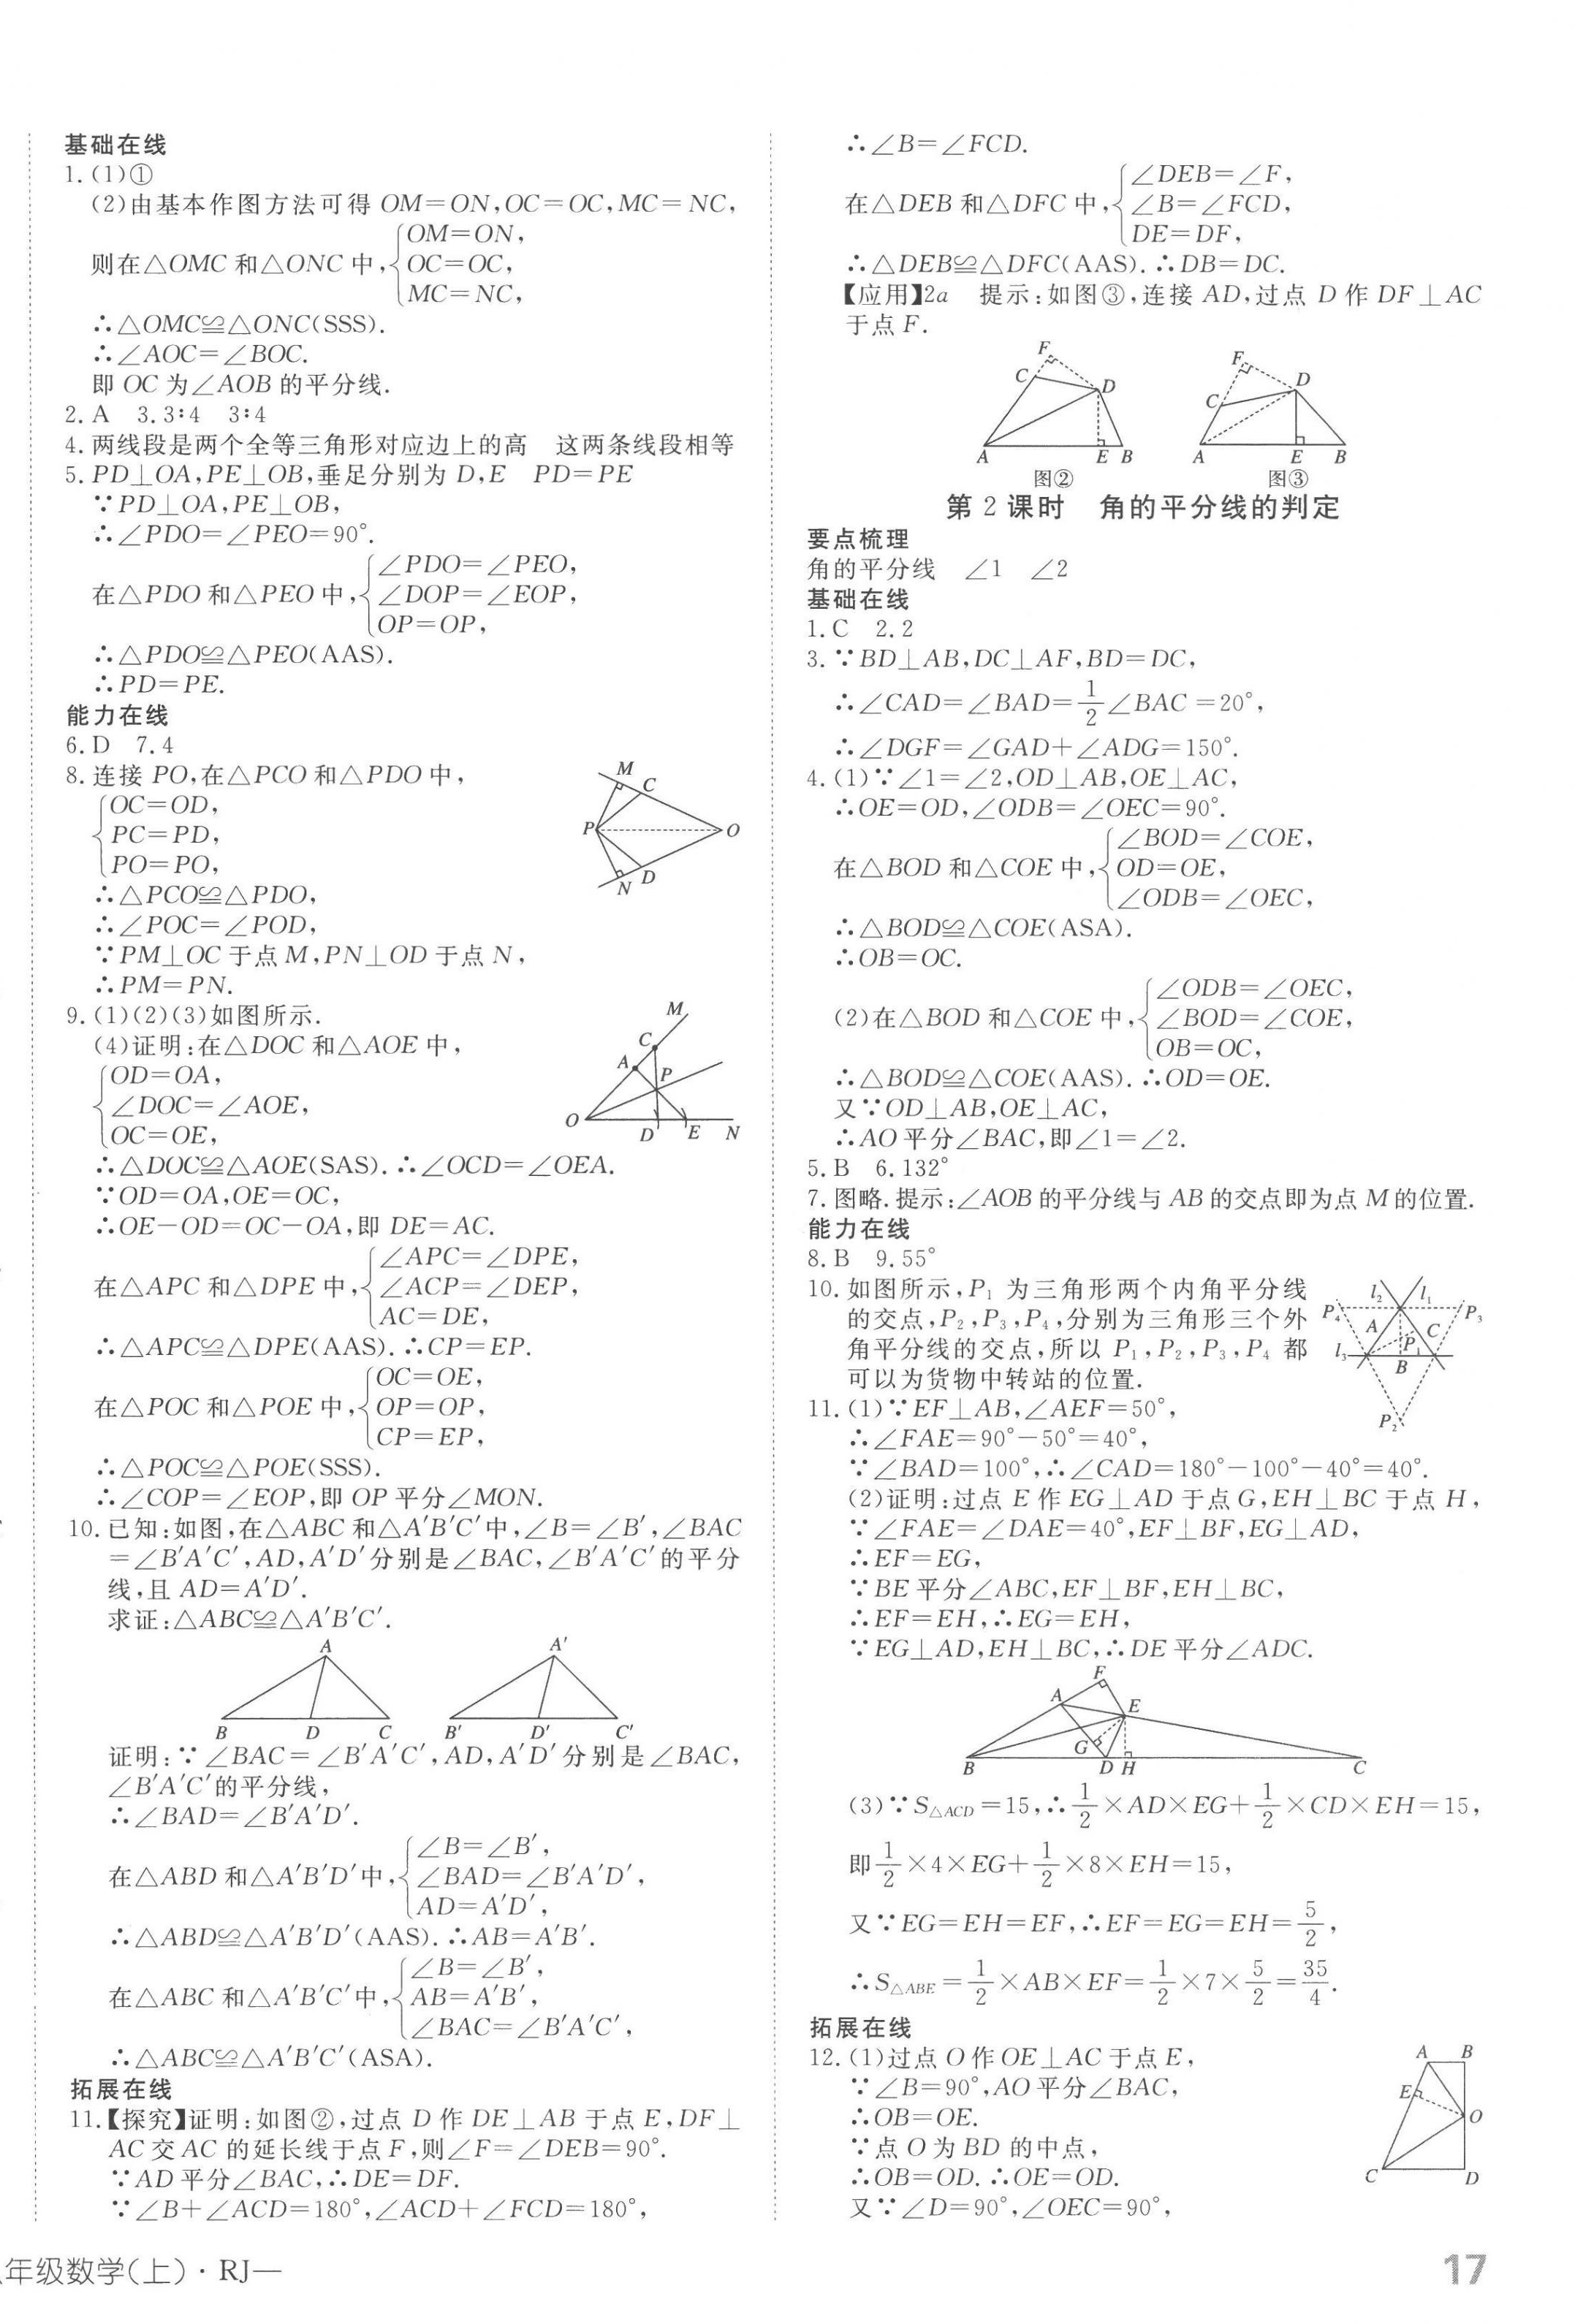 基础在线
1.(1)①
(2)由基本作图方法可得 OM=ON,OC=OC,MC=NC,
则在△OMC 和△ONC 中,{OM=ON,
OC=OC,
MC=NC,
∴△OMC≌△ONC(SSS).
∴∠AOC=∠BOC.
即 OC 为∠AOB 的平分线.
2.A 3.3∶4 3∶4
4.两线段是两个全等三角形对应边上的高 这两条线段相等
5.PD⊥OA,PE⊥OB,垂足分别为 D,E PD=PE
∵PD⊥OA,PE⊥OB,
∴∠PDO=∠PEO=90°.
在△PDO 和△PEO 中,{∠PDO=∠PEO,
∠DOP=∠EOP,
OP=OP,
∴△PDO≌△PEO(AAS).
∴PD=PE.
能力在线
6.D 7.4
8.连接 PO,在△PCO 和△PDO 中,
{OC=OD,
PC=PD,
PO=PO,
∴△PCO≌△PDO,
∴∠POC=∠POD,
∵PM⊥OC 于点 M,PN⊥OD 于点 N,
∴PM=PN.
M
C
P
O
N D
9.(1)(2)(3)如图所示.
(4)证明:在△DOC 和△AOE 中,
{OD=OA,
∠DOC=∠AOE,
OC=OE,
∴△DOC≌△AOE(SAS).∴∠OCD=∠OEA.
∵OD=OA,OE=OC,
∴OE-OD=OC-OA,即 DE=AC.
在△APC 和△DPE 中,{∠APC=∠DPE,
∠ACP=∠DEP,
AC=DE,
∴△APC≌△DPE(AAS).∴CP=EP.
在△POC 和△POE 中,{OC=OE,
OP=OP,
CP=EP,
∴△POC≌△POE(SSS).
∴∠COP=∠EOP,即 OP 平分∠MON.
M
C
A
P
O
D E N
10.已知:如图,在△ABC 和△A′B′C′中,∠B=∠B′,∠BAC
=∠B′A′C′,AD,A′D′分别是∠BAC,∠B′A′C′的平分
线,且 AD=A′D′.
求证:△ABC≌△A′B′C′.
A A′
B D C B′ D′ C′
证明:∵∠BAC=∠B′A′C′,AD,A′D′分别是∠BAC,
∠B′A′C′的平分线,
∴∠BAD=∠B′A′D′.
在△ABD 和△A′B′D′中,{∠B=∠B′,
∠BAD=∠B′A′D′,
AD=A′D′,
∴△ABD≌△A′B′D′(AAS).∴AB=A′B′.
在△ABC 和△A′B′C′中,{∠B=∠B′,
AB=A′B′,
∠BAC=∠B′A′C′,
∴△ABC≌△A′B′C′(ASA).
拓展在线
11.【探究】证明:如图②,过点 D 作 DE⊥AB 于点 E,DF⊥
AC 交 AC 的延长线于点 F,则∠F=∠DEB=90°.
∵AD 平分∠BAC,∴DE=DF.
∵∠B+∠ACD=180°,∠ACD+∠FCD=180°,
∴∠B=∠FCD.
在△DEB 和△DFC 中,{∠DEB=∠F,
∠B=∠FCD,
DE=DF,
∴△DEB≌△DFC(AAS).∴DB=DC.
【应用】2a 提示:如图③,连接 AD,过点 D 作 DF⊥AC
于点 F.
F F
C D C D
A E B A E B
图② 图③
第 2 课时 角的平分线的判定
要点梳理
角的平分线 ∠1 ∠2
基础在线
1.C 2.2
3.∵BD⊥AB,DC⊥AF,BD=DC,
∴∠CAD=∠BAD=1/2∠BAC=20°,
∴∠DGF=∠GAD+∠ADG=150°.
4.(1)∵∠1=∠2,OD⊥AB,OE⊥AC,
∴OE=OD,∠ODB=∠OEC=90°.
在△BOD 和△COE 中,{∠BOD=∠COE,
OD=OE,
∠ODB=∠OEC,
∴△BOD≌△COE(ASA).
∴OB=OC.
(2)在△BOD 和△COE 中,{∠ODB=∠OEC,
∠BOD=∠COE,
OB=OC,
∴△BOD≌△COE(AAS).∴OD=OE.
又∵OD⊥AB,OE⊥AC,
∴AO 平分∠BAC,即∠1=∠2.
5.B 6.132°
7.图略.提示:∠AOB 的平分线与 AB 的交点即为点 M 的位置.
能力在线
8.B 9.55°
10.如图所示,P₁ 为三角形两个内角平分线
的交点,P₂,P₃,P₄,分别为三角形三个外
角平分线的交点,所以 P₁,P₂,P₃,P₄ 都
可以为货物中转站的位置.
l₂ l₁
P₄ P₃
A C
l₃ P₁
B
P₂
11.(1)∵EF⊥AB,∠AEF=50°,
∴∠FAE=90°-50°=40°,
∵∠BAD=100°,∴∠CAD=180°-100°-40°=40°.
(2)证明:过点 E 作 EG⊥AD 于点 G,EH⊥BC 于点 H,
∵∠FAE=∠DAE=40°,EF⊥BF,EG⊥AD,
∴EF=EG,
∵BE 平分∠ABC,EF⊥BF,EH⊥BC,
∴EF=EH,∴EG=EH,
∵EG⊥AD,EH⊥BC,∴DE 平分∠ADC.
F
A
E
G
B D H C
(3)∵S△ACD=15,∴1/2×AD×EG+1/2×CD×EH=15,
即1/2×4×EG+1/2×8×EH=15,
又∵EG=EH=EF,∴EF=EG=EH=5/2,
∴S△ABE=1/2×AB×EF=1/2×7×5/2=35/4.
拓展在线
12.(1)过点 O 作 OE⊥AC 于点 E,
∵∠B=90°,AO 平分∠BAC,
∴OB=OE.
∵点 O 为 BD 的中点,
∴OB=OD.∴OE=OD.
又∵∠D=90°,∠OEC=90°,
A B
E
O
C D
年级数学(上)·RJ—
17